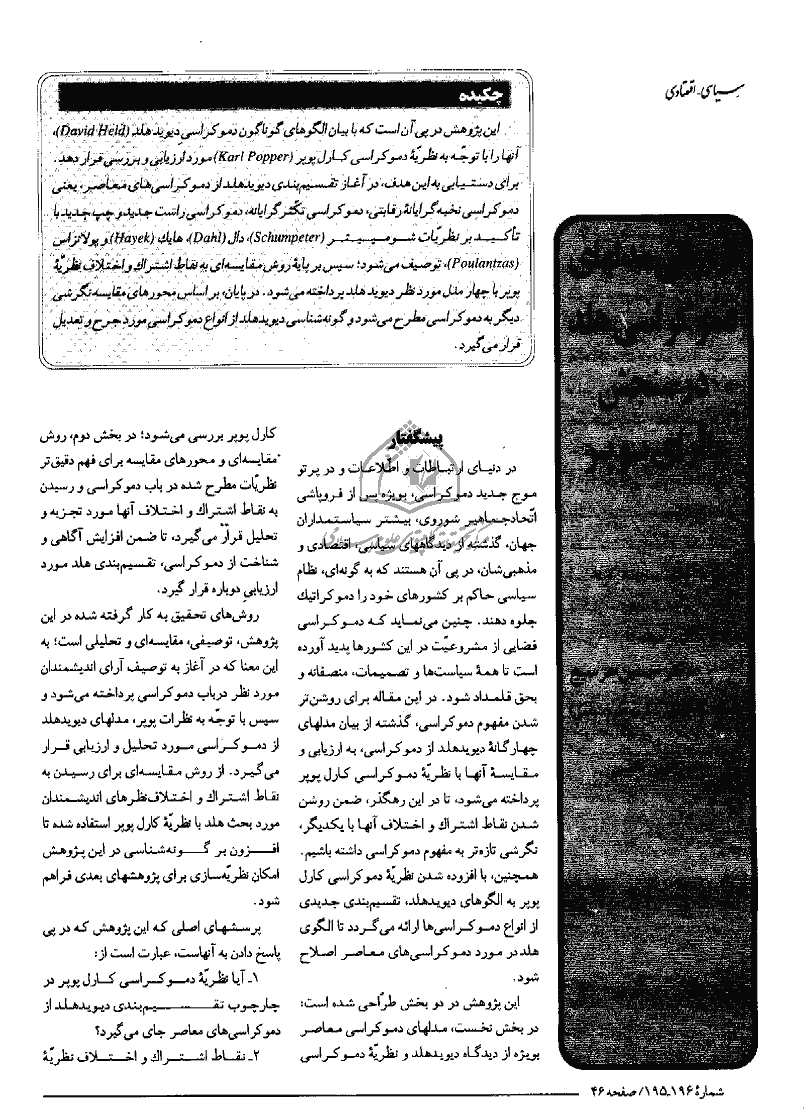 سیاسی-اقتصادی
مدلهای
دموکراسی هلد
در سنجش
آرای پوپر
چکیده
این پژوهش در پی آن است که با بیان الگوهای گوناگون دموکراسی دیوید هلد (David Held)،
آنها را با توجّه به نظریهٔ دموکراسی کارل پوپر (Karl Popper) مورد ارزیابی و بررسی قرار دهد.
برای دستیابی به این هدف، در آغاز تقسیم‌بندی دیوید هلد از دموکراسی‌های معاصر، یعنی
دموکراسی نخبه‌گرایانهٔ رقابتی، دموکراسی تکثّرگرایانه، دموکراسی راست جدید و چپ جدید با
تأکید بر نظریّات شومپیتر (Schumpeter)، دال (Dahl)، هایك (Hayek) و پولانزاس
(Poulantzas)، توصیف می‌شود؛ سپس بر پایهٔ روش مقایسه‌ای به نقاط اشتراك و اختلاف نظریّهٔ
پوپر با چهار مدل مورد نظر دیوید هلد پرداخته می‌شود. در پایان، بر اساس محورهای مقایسه نگرشی
دیگر به دموکراسی مطرح می‌شود و گونه‌شناسی دیوید هلد از انواع دموکراسی مورد جرح و تعدیل
قرار می‌گیرد.
پیشگفتار
در دنیای ارتباطات و اطّلاعات و در پرتو
موج جدید دموکراسی، بویژه پس از فروپاشی
اتّحاد جماهیر شوروی، بیشتر سیاستمداران
جهان، گذشته از دیدگاههای سیاسی، اقتصادی و
مذهبی‌شان، در پی آن هستند که به گونه‌ای، نظام
سیاسی حاکم بر کشورهای خود را دموکراتیك
جلوه دهند. چنین می‌نماید که دموکراسی
فضایی از مشروعیّت در این کشورها پدید آورده
است تا همهٔ سیاست‌ها و تصمیمات، منصفانه و
بحق قلمداد شود. در این مقاله برای روشن‌تر
شدن مفهوم دموکراسی، گذشته از بیان مدلهای
چهارگانهٔ دیوید هلد از دموکراسی، به ارزیابی و
مقایسهٔ آنها با نظریّهٔ دموکراسی کارل پوپر
پرداخته می‌شود، تا در این رهگذر، ضمن روشن
شدن نقاط اشتراك و اختلاف آنها با یکدیگر،
نگرشی تازه‌تر به مفهوم دموکراسی داشته باشیم.
همچنین، با افزوده شدن نظریّهٔ دموکراسی کارل
پوپر به الگوهای دیوید هلد، تقسیم‌بندی جدیدی
از انواع دموکراسی‌ها ارائه می‌گردد تا الگوی
هلد در مورد دموکراسی‌های معاصر اصلاح
شود.
این پژوهش در دو بخش طرّاحی شده است:
در بخش نخست، مدلهای دموکراسی معاصر
بویژه از دیدگاه دیوید هلد و نظریّهٔ دموکراسی
کارل پوپر بررسی می‌شود؛ در بخش دوم، روش
مقایسه‌ای و محورهای مقایسه برای فهم دقیق‌تر
نظریّات مطرح شده در باب دموکراسی و رسیدن
به نقاط اشتراك و اختلاف آنها مورد تجزیه و
تحلیل قرار می‌گیرد، تا ضمن افزایش آگاهی و
شناخت از دموکراسی، تقسیم‌بندی هلد مورد
ارزیابی دوباره قرار گیرد.
روش‌های تحقیق به کار گرفته شده در این
پژوهش، توصیفی، مقایسه‌ای و تحلیلی است؛ به
این معنا که در آغاز به توصیف آرای اندیشمندان
مورد نظر درباب دموکراسی پرداخته می‌شود و
سپس با توجّه به نظرات پوپر، مدلهای دیوید هلد
از دموکراسی مورد تحلیل و ارزیابی قرار
می‌گیرد. از روش مقایسه‌ای برای رسیدن به
نقاط اشتراك و اختلاف‌نظرهای اندیشمندان
مورد بحث هلد با نظریّهٔ کارل پوپر استفاده شده تا
افزون بر گونه‌شناسی در این پژوهش
امکان نظریّه‌سازی برای پژوهشهای بعدی فراهم
شود.
پرسشهای اصلی که این پژوهش که در پی
پاسخ دادن به آنهاست، عبارت است از:
۱ـ آیا نظریّهٔ دموکراسی کارل پوپر در
چارچوب تقسیم‌بندی دیوید هلد از
دموکراسی‌های معاصر جای می‌گیرد؟
۲ـ نقاط اشتراك و اختلاف نظریّهٔ
شمارهٔ ۱۹۶ـ۱۹۵/ صفحه ۴۶